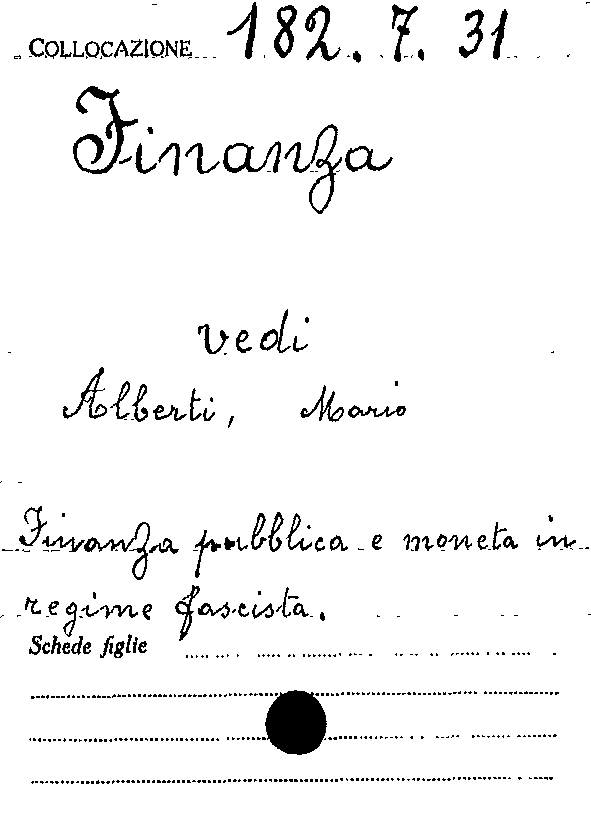 COLLOCAZIONE 182. 7. 31
Finanza
vedi
Alberti, Mario
Finanza pubblica e moneta in
regime fascista.
Schede figlie